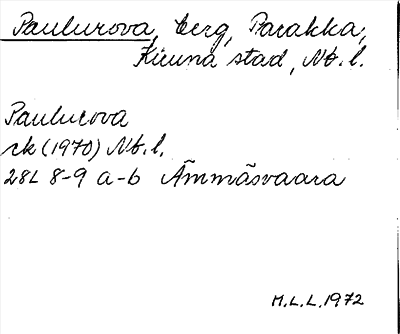 Paulurova, berg, Parakka,
Kiruna stad, Nb.l.
Paulurova
rk (1970) Nb.l.
28L 8-9 a-b Ämmäsvaara
M.L.L. 1972